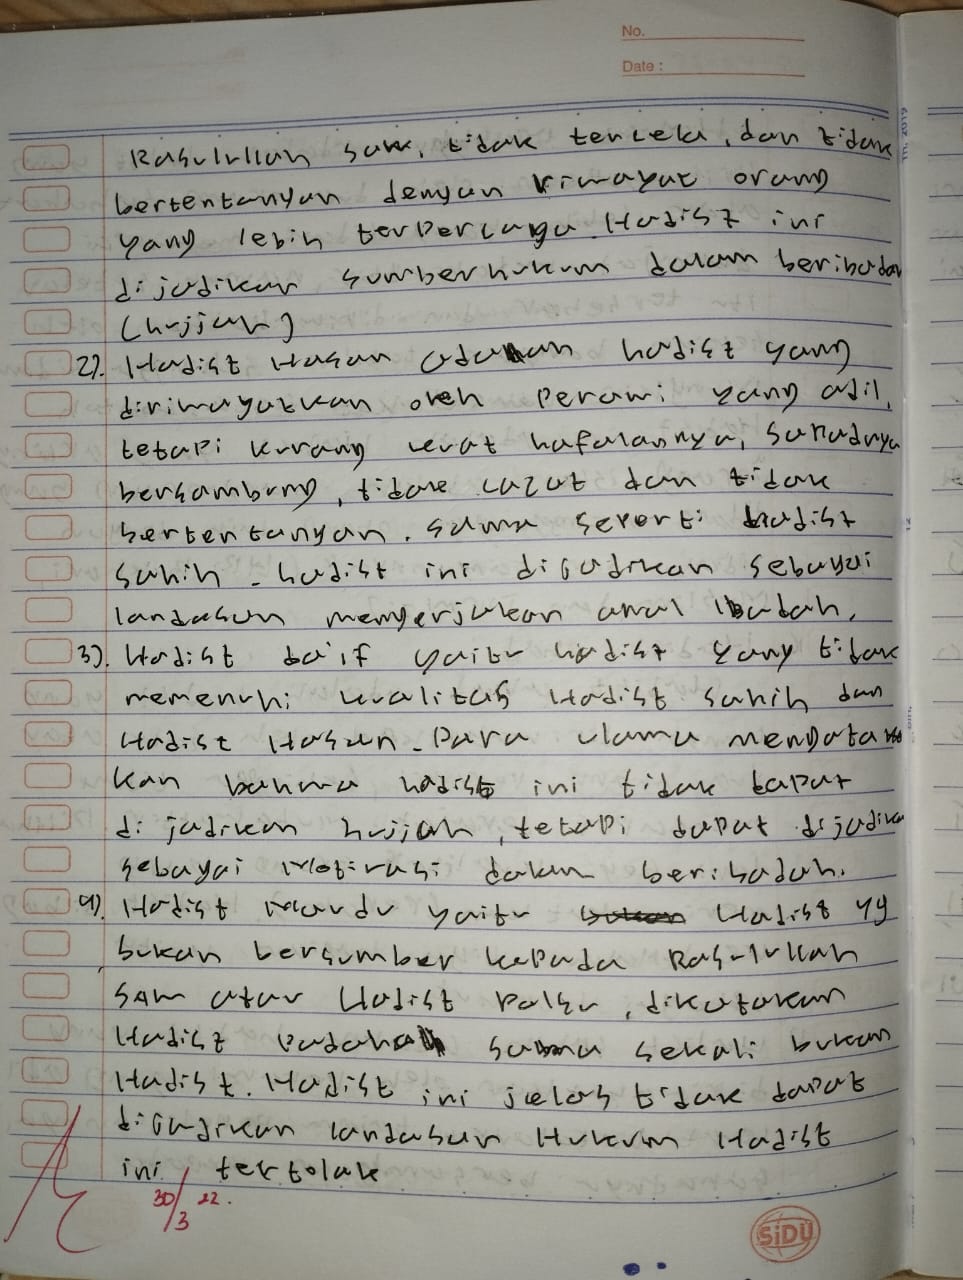 No.
Date :
Rasulullah saw, tidak tercela, dan tidak
bertentangan dengan riwayat orang
yang lebih terpercaya. Hadist ini
dijadikan sumber hukum dalam beribadah
(hujjah)
2). Hadist Hasan adalah hadist yang
diriwayatkan oleh perawi yang adil,
tetapi kurang kuat hafalannya, sanadnya
bersambung, tidak cacat dan tidak
bertentangan. sama seperti hadist
sahih. hadist ini dijadikan sebagai
landasan mengerjakan amal ibadah.
3). Hadist da'if yaitu hadist yang tidak
memenuhi kualitas Hadist sahih dan
Hadist Hasan. Para ulama mengata
kan bahwa hadist ini tidak dapat
di jadikan hujjah, tetapi dapat dijadika
sebagai Motivasi dalam beribadah.
4). Hadist Maudu yaitu Hadist yg
bukan bersumber kepada Rasulullah
SAW atau Hadist palsu, dikatakan
Hadist padahal sama sekali bukan
Hadist. Hadist ini jelas tidak dapat
dijadikan landasan Hukum Hadist
ini tertolak
30/3 22.
SiDU